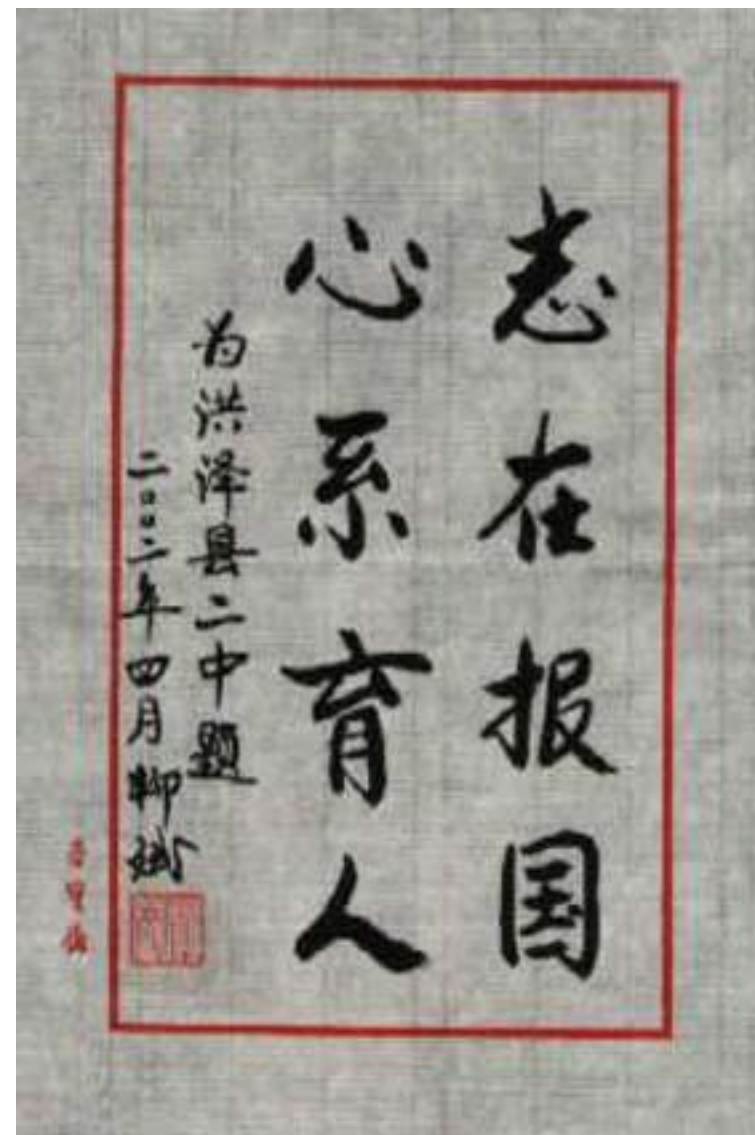 志在报国
心系育人
为洪泽县二中题
二〇〇二年四月柳斌